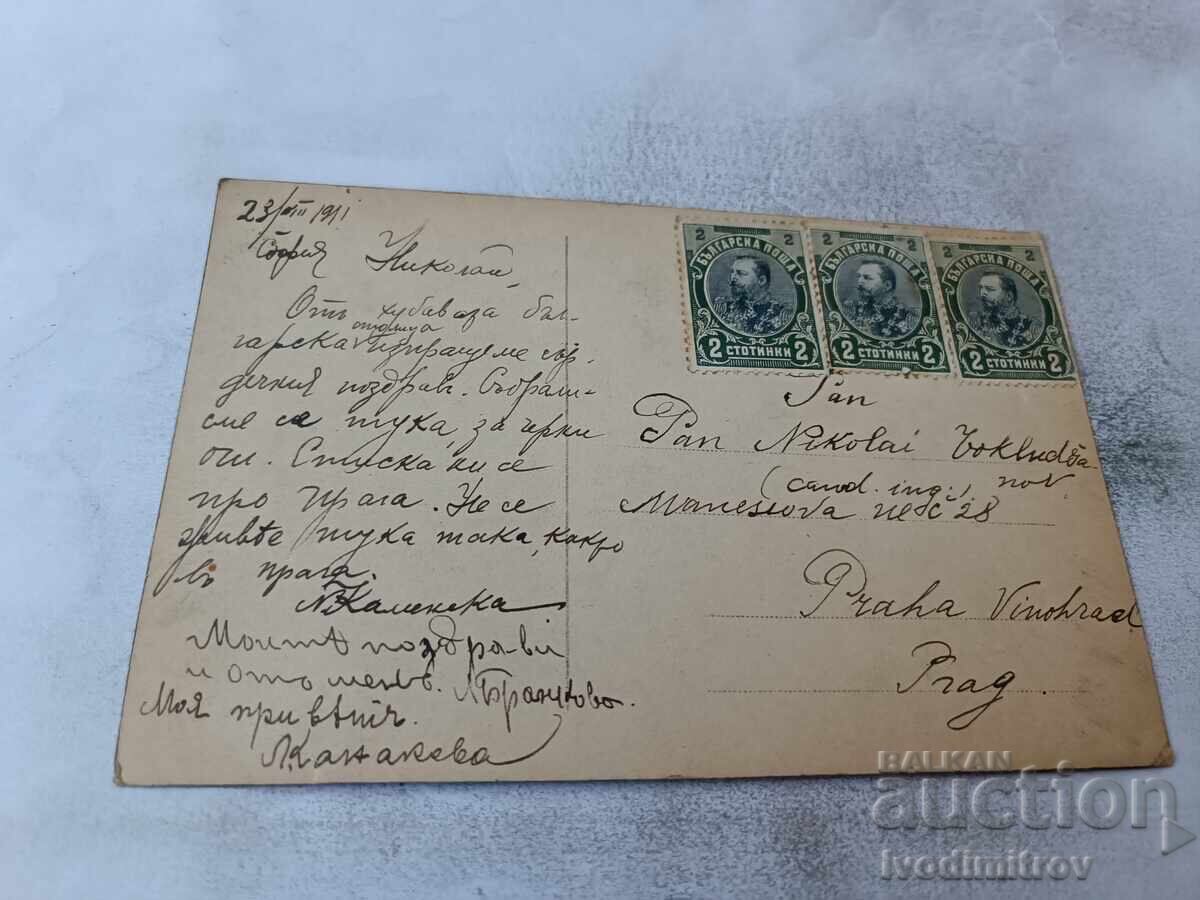 23/VIII 1911
София
Николай,
Отъ хубавата бъл-
гарска столица изпращаме сър-
дечния поздравъ. Събрали-
сме се тука, за чрни
очи. Стиска ни се
про Прага. Не се
живѣе тука така, както
въ прага.
Каменска
Моитѣ поздра-ви
и отъ менъ.
Моя привѣтъ.
2 2
БЪЛГАРСКА ПОЩА
2 СТОТИНКИ 2
2 2
БЪЛГАРСКА ПОЩА
2 СТОТИНКИ 2
2 2
БЪЛГАРСКА ПОЩА
2 СТОТИНКИ 2
Pan
Pan Nikolai
(cand. ing.)
28
Praha Vinohrad
Prag.
BALKAN
auction
ivodimitrov